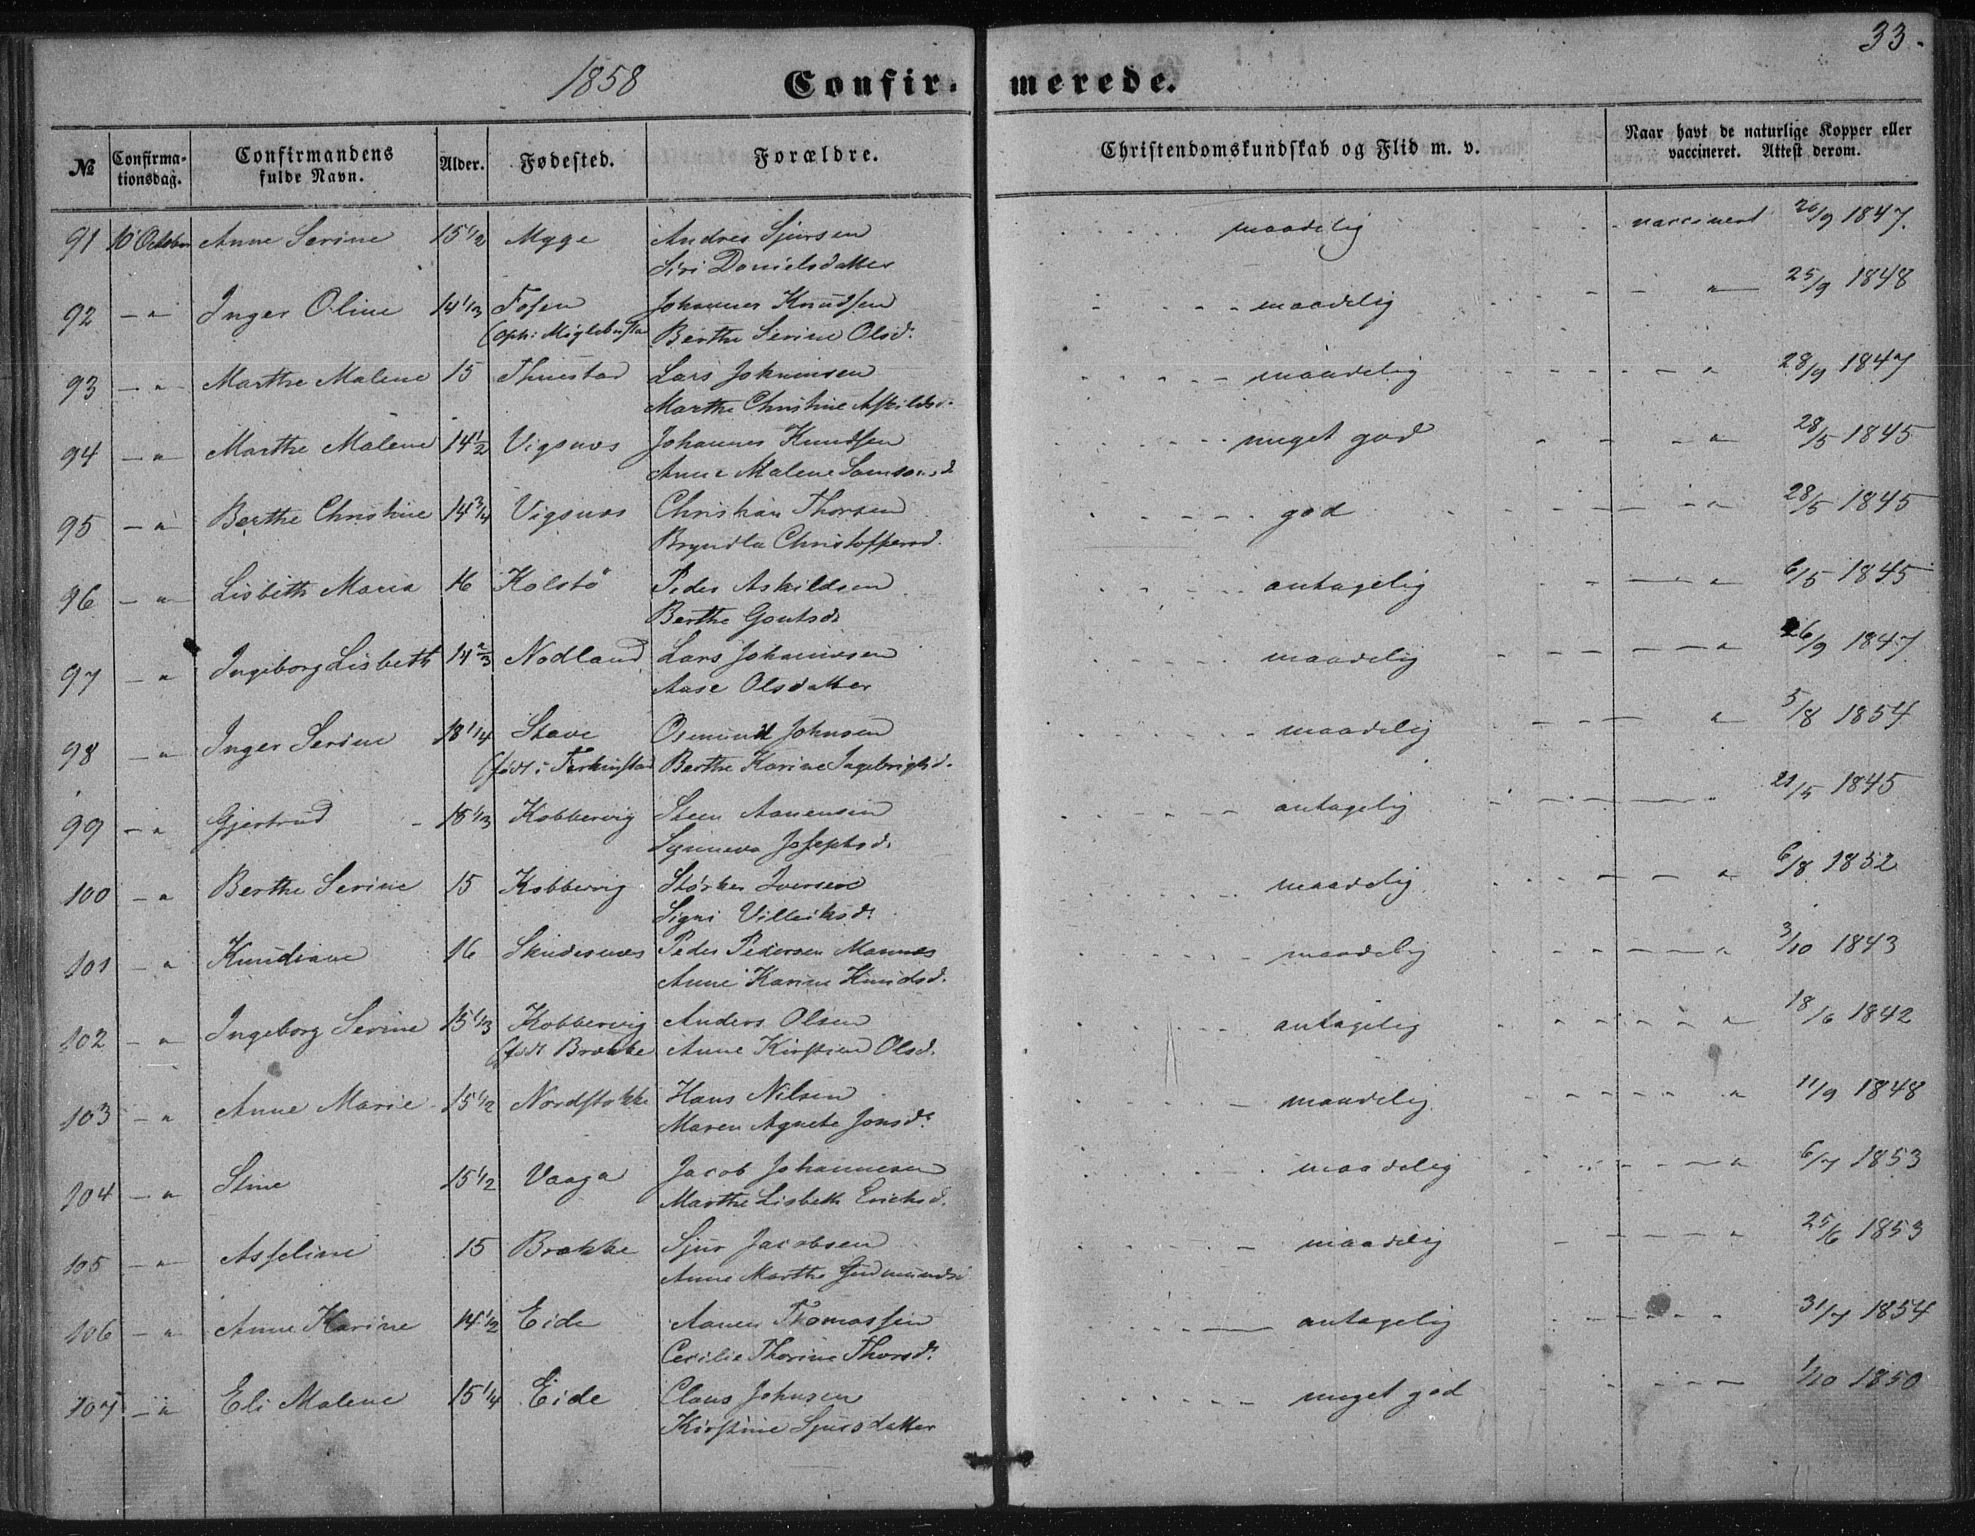 33.
1858 Confirmerede.
№ Confirmationsdag. Confirmandens fulde Navn. Alder. Fødested. Forældre. Christendomskundskab og Flid m. v. Naar havt de naturlige Kopper eller vaccineret. Attest derom.
91 10 October Anne Serine 15 1/2 Myge Andres Sjursen maadelig vaccineret 26/9 1847.
Siri Danielsdatter
92 — " Inger Oline 14 1/3 Fosen Johannes Knudsen maadelig — " — 25/9 1848
Berthe Serine Olsd.
93 — " — Marthe Malene 15 Thuestad Lars Johannesen maadelig — " 28/9 1847
Marthe Christine Askildsd.
94 — " — Marthe Malene 14 1/2 Vigsnæs Johannes Knudsen meget god — " 28/5 1845
Anne Malene Samsonsd
95 — " — Berthe Christine 14 3/4 Vigsnæs Christian Thorsen god — " 28/5 1845
Bryndla Christoffersd.
96 — " — Lisbeth Maria 16 Kolstö Peder Askildsen antagelig — " 6/5 1845
Berthe Gautsd.
97 — " Ingeborg Lisbeth 14 2/3 Nodland Lars Johannesen maadelig — " 26/9 1847
Aase Olsdatter
98 — " Inger Serine 18 1/4 Stave Osmund Johnsen maadelig — " 5/8 1854
(född i Ferkinstad Berthe Karine Ingebrigtsd.
99 — " Gjertrud 15 1/3 Kobbervig Steen Aanensen antagelig — " 21/5 1845
Synneva Josephsd.
100 — " Berthe Serine 15 Kobbervig Størker Iversen maadelig — " 6/8 1852
Signi Villeiksd.
101 — " Knudiane 16 Skudesnæs Peder Pedersen Mannes maadelig — " 3/10 1843
Anne Karine Knudsd.
102 — " Ingeborg Serine 15 1/3 Kobbervig Anders Olsen antagelig — " 18/6 1842
(född Brække Anne Kirstine Olsd.
103 — " Anne Marie 15 1/2 Nordstokke Hans Nilsen maadelig — " 11/9 1848
Maren Agnete Jonsd.
104 — " Stine 15 1/2 Vaaga Jacob Johannesen maadelig — " 6/7 1853
Marthe Lisbeth Ericksd.
105 — " Asseline 15 Brække Sjur Jacobsen maadelig — " 25/6 1853
Anne Marthe Gudmundsd
106 — " Anne Karine 14 1/2 Eide Aanen Thomassen antagelig — " 31/7 1854
Cecilie Thorine Thorsd.
107 — " Eli Malene 15 1/4 Eide Claus Johnsen meget god — " 1/10 1850
Kirstine Sjursdatter